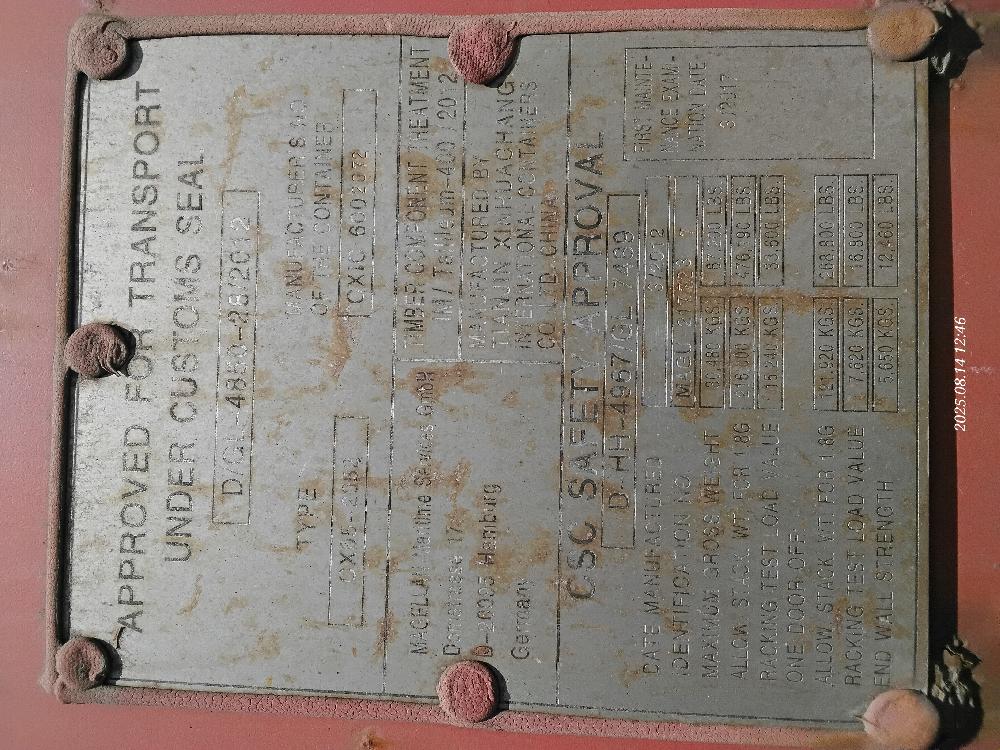 APPROVED FOR TRANSPORT
UNDER CUSTOMS SEAL
D/GL-4850-28/2012
TYPE
MANUFACTURER'S NO.
OF THE CONTAINER
CXIC 6002072
MAGELLAN Maritime Services GmbH
Hamburg
Germany
TIMBER COMPONENT TREATMENT
IM / Tailileum-400 / 2012
MANUFACTURED BY
TIANJIN XINHUACHANG
INTERNATIONAL CONTAINERS
CO., LTD. CHINA
CSC SAFETY APPROVAL
D-HH-4967/GL 7499
DATE MANUFACTURED 3/2012
IDENTIFICATION NO. MAGL
MAXIMUM GROSS WEIGHT 30,480 KGS 67,200 LBS.
ALLOW. STACK. WT. FOR 1.8G
RACKING TEST LOAD VALUE 15,240 KGS 33,600 LBS.
ONE DOOR OFF:
ALLOW. STACK. WT FOR 1.8G 121,920 KGS 268,800 LBS.
RACKING TEST LOAD VALUE 7,620 KGS 16,800 LBS.
END WALL STRENGTH 5,650 KGS 12,460 LBS.
FIRST MAINTE-
NANCE EXAMI-
NATION DATE
3/2017
2025.08.14 12:46